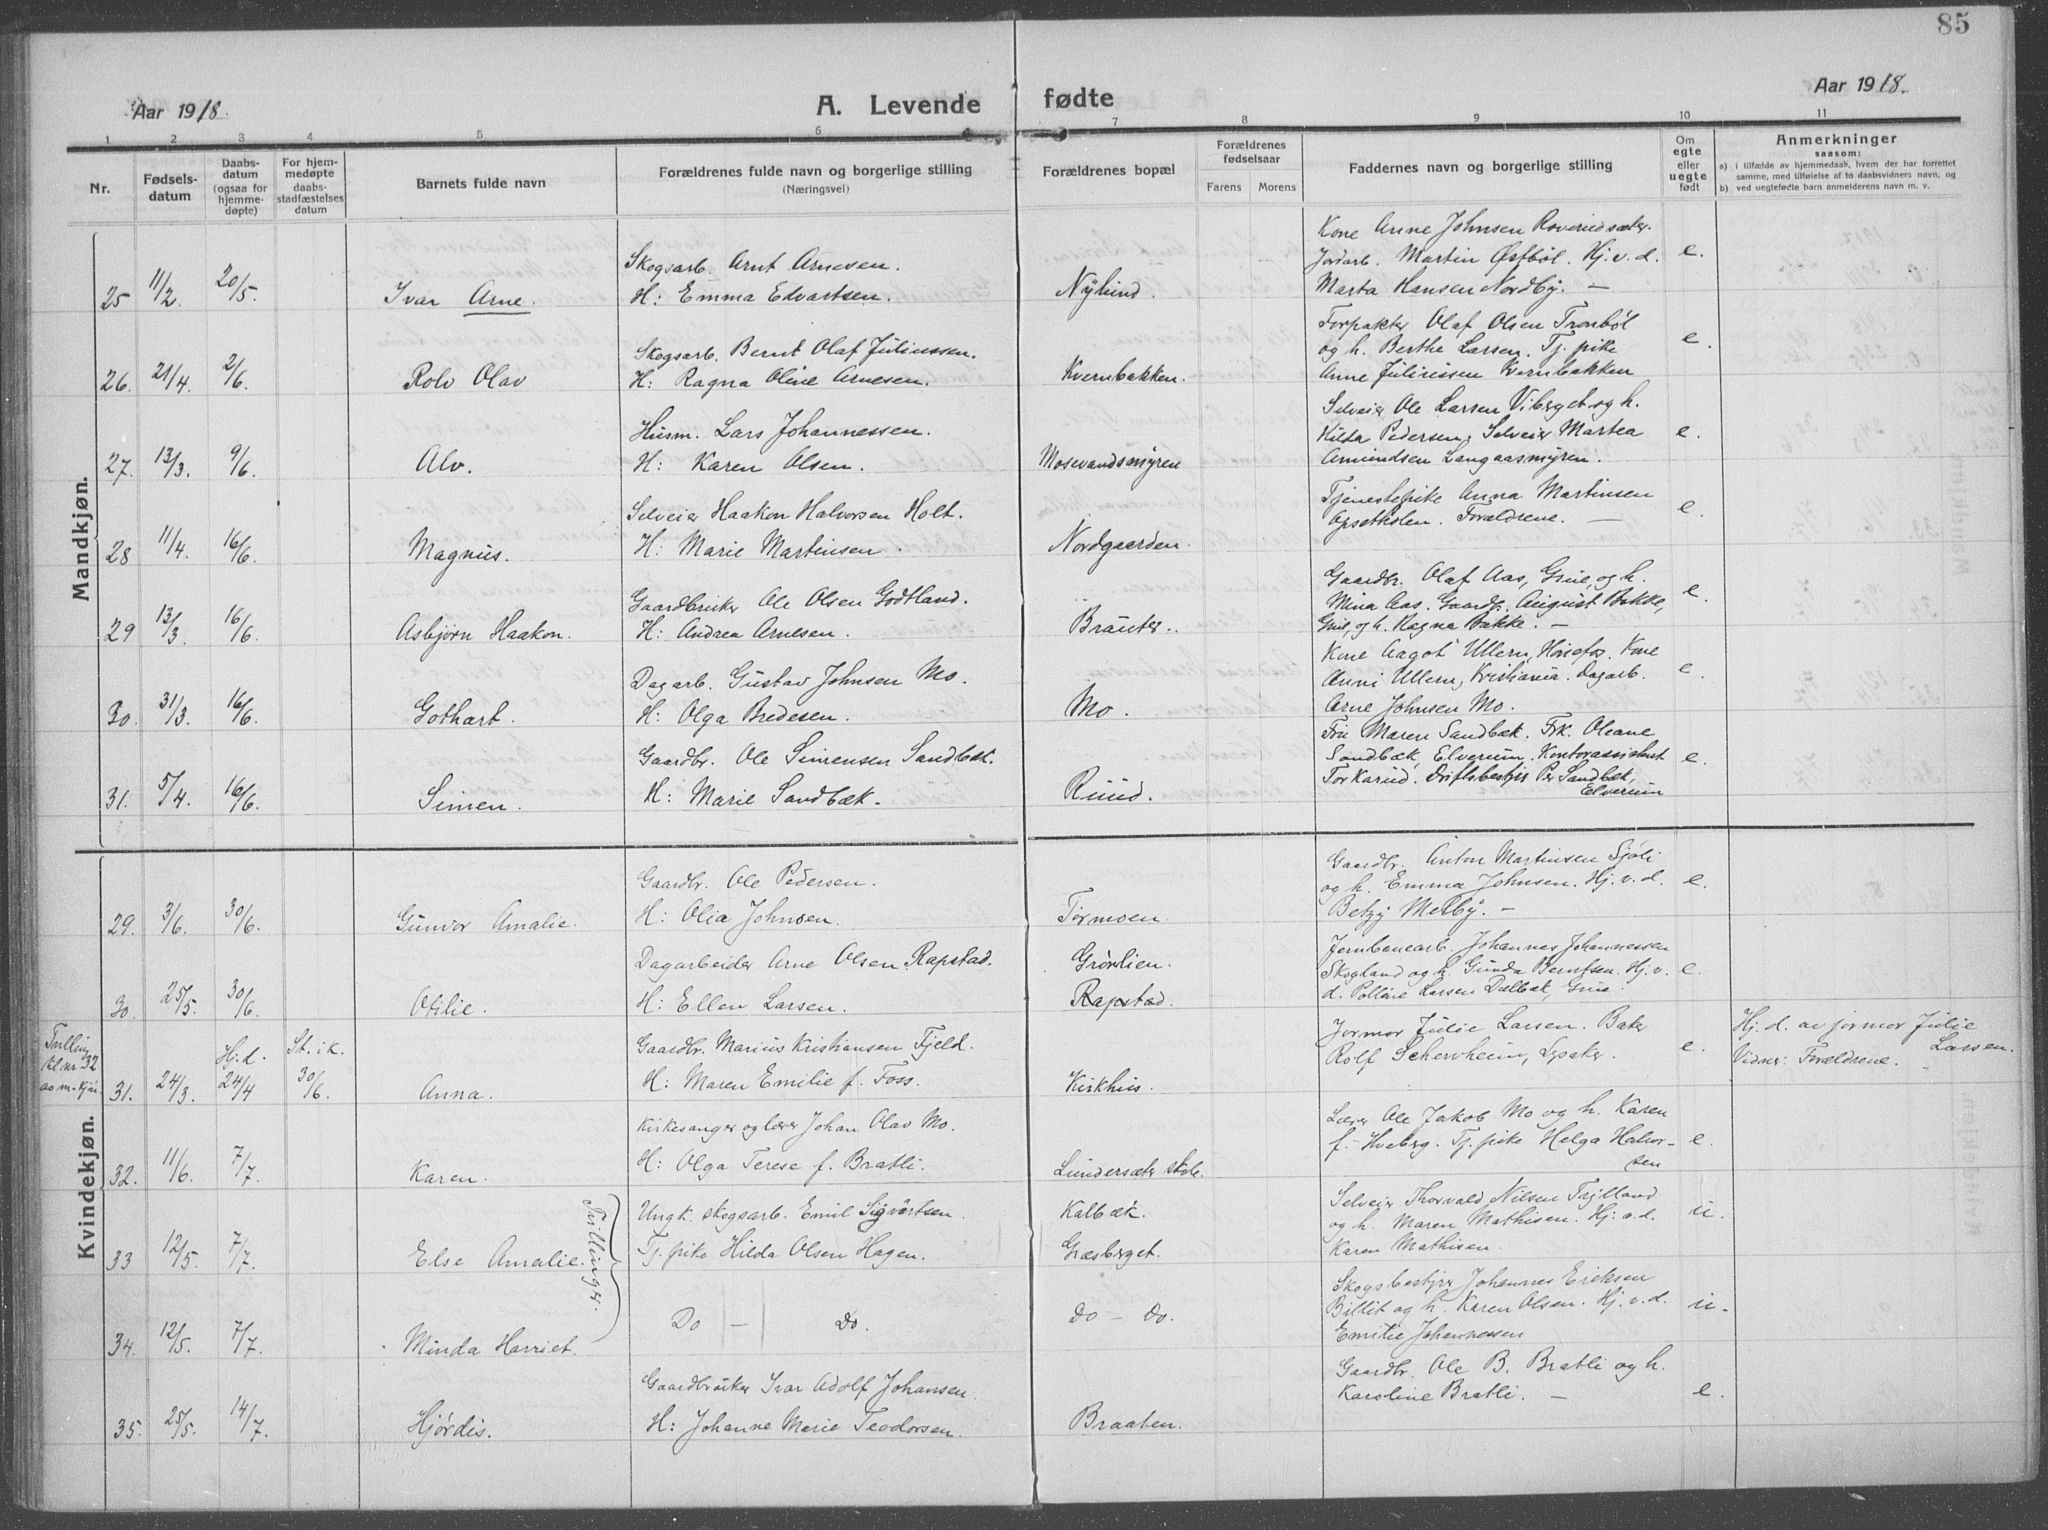 85
Aar 1918.
A. Levende fødte
Aar 1918.
1 2 3 4 5 6 7 8 9 10 11
Nr.
Fødsels-
datum
Daabs-
datum
(ogsaa for
hjemme-
døpte)
For hjem-
medøpte
daabs-
stadfæstelses
datum
Barnets fulde navn
Forældrenes fulde navn og borgerlige stilling
(Næringsvei)
Forældrenes bopæl
Forældrenes
fødselsaar
Farens Morens
Faddernes navn og borgerlige stilling
Om
egte
eller
uegte
født
Anmerkninger
saasom:
a) i tilfælde av hjemmedaab, hvem der har forrettet
samme, med tilføielse af to daabsvidners navn, og
b) ved uegtefødte barn anmelderens navn m. v.
Mandkjøn.
25 11/2. 20/5. Ivar Arne.
Skogsarb. Arnt Arnesen.
H: Emma Edvartsen.
Nylund.
Kone Anne Johnsen Roverudsæter.
Jordarb. Martin Østbøl. Hj. v. d.
Marta Hansen Nordby. —
e.
26. 21/4. 2/6. Rolv Olav
Skogsarb. Bernt Olaf Juliussen.
H: Ragna Oline Arnesen.
Kvernbakken.
Forpakter Olaf Olsen Tronbøl
og h. Berthe Larsen. Tj. pike
Anne Juliussen Kvernbakken
e.
27. 13/3. 9/6. Alv.
Husm. Lars Johannessen.
H: Karen Olsen.
Mosevandsmyren
Selveier Ole Larsen Viberget og h.
Hilda Pedersen, Selveier Martea
Amundsen Langaasmyren.
e.
28 11/4. 16/6. Magnus.
Selveier Haakon Halvorsen Holt.
H: Marie Martinsen.
Nordgaarden.
Tjenestepike Anna Martinsen
Opsetkolen. Forældrene. —
e.
29 13/3. 16/6. Asbjørn Haakon.
Gaardbruker Ole Olsen Godtland.
H: Andrea Arnesen.
Brauter.
Gaardbr. Olaf Aas, Grue, og h.
Mina Aas. Gaardb. August Bakke,
Grue, og h. Ragna Bakke. —
e.
30. 31/3. 16/6. Gothart.
Dagarb. Gustav Johnsen Mo.
H: Olga Bredesen.
Mo.
Kone Aagot Ullern, Hønefos. Kone
Anni Ullern, Kristiania. Dagarb.
Arne Johnsen Mo.
e.
31. 5/4. 16/6. Simen.
Gaardbr. Ole Simensen Sandbæk.
H: Marie Sandbæk.
Ruud.
Fru Maren Sandbæk. Frk. Oleane
Sandbæk, Elverum. Kontorassistent
Tor Karud. Driftsbestyr. Per Sandbæk,
Elverum
e.
Kvindekjøn.
29. 3/6. 30/6. Gunvor Amalie.
Gaardbr. Ole Pedersen.
H: Olia Johnsen.
Tormoen.
Gaardbr. Anton Martinsen Sjøli
og h. Emma Johnsen. Hj. v. d.
Betzy Melby. —
e.
30. 25/5. 30/6. Otilie.
Dagarbeider Arne Olsen Rapstad.
H: Ellen Larsen.
Grønlien.
Rapstad.
Jernbanearb. Johannes Johannessen
Skogland og h. Gunda Berntsen. Hj. v.
d. Polline Larsen Dalbak, Grue.
e.
Tvilling
til nr 32
ao m-kjøn.
Hj. d. St. i k.
31. 24/3. 24/4 30/6. Anna.
Gaardbr. Marius Kristiansen Fjeld.
H: Maren Emilie f. Foss.
Kirkhus.
Jormor Julie Larsen. Baker
Rolf Schervheim, Lysaker.
e.
Hj. d. av jormor Julie
Larsen.
Vidner: Forældrene.
32. 11/6. 7/7. Karen.
Kirkesanger og lærer Johan Olav Mo.
H: Olga Terese f. Bratli.
Lundersæter skole.
Lærer Ole Jakob Mo og h. Karen
f. Hveberg. Tj. pike Helga Halvor-
sen
e.
33 12/5. 7/7. Else Amalie.
Tvillinger.
Ungk. skogsarb. Emil Sigvartsen.
Tj. pike Hilda Olsen Hagen.
Kalbæk.
Græsberget.
Selveier Thorvald Nilsen Trylland
og h. Maren Mathisen. Hj. v. d.
Karen Mathisen.
u.
34. 12/5. 7/7. Minda Harriet.
Do — Do.
Do — Do.
Skogsbestyrer Johannes Eriksen
Billit og h. Karen Olsen. Hj. v. d.
Emilie Johannessen
u.
35. 25/5. 14/7. Hjørdis.
Gaardbruker Ivar Adolf Johansen.
H: Johanne Marie Teodorsen.
Braaten.
Gaardbr. Ole B. Bratli og h.
Karoline Bratli. —
e.